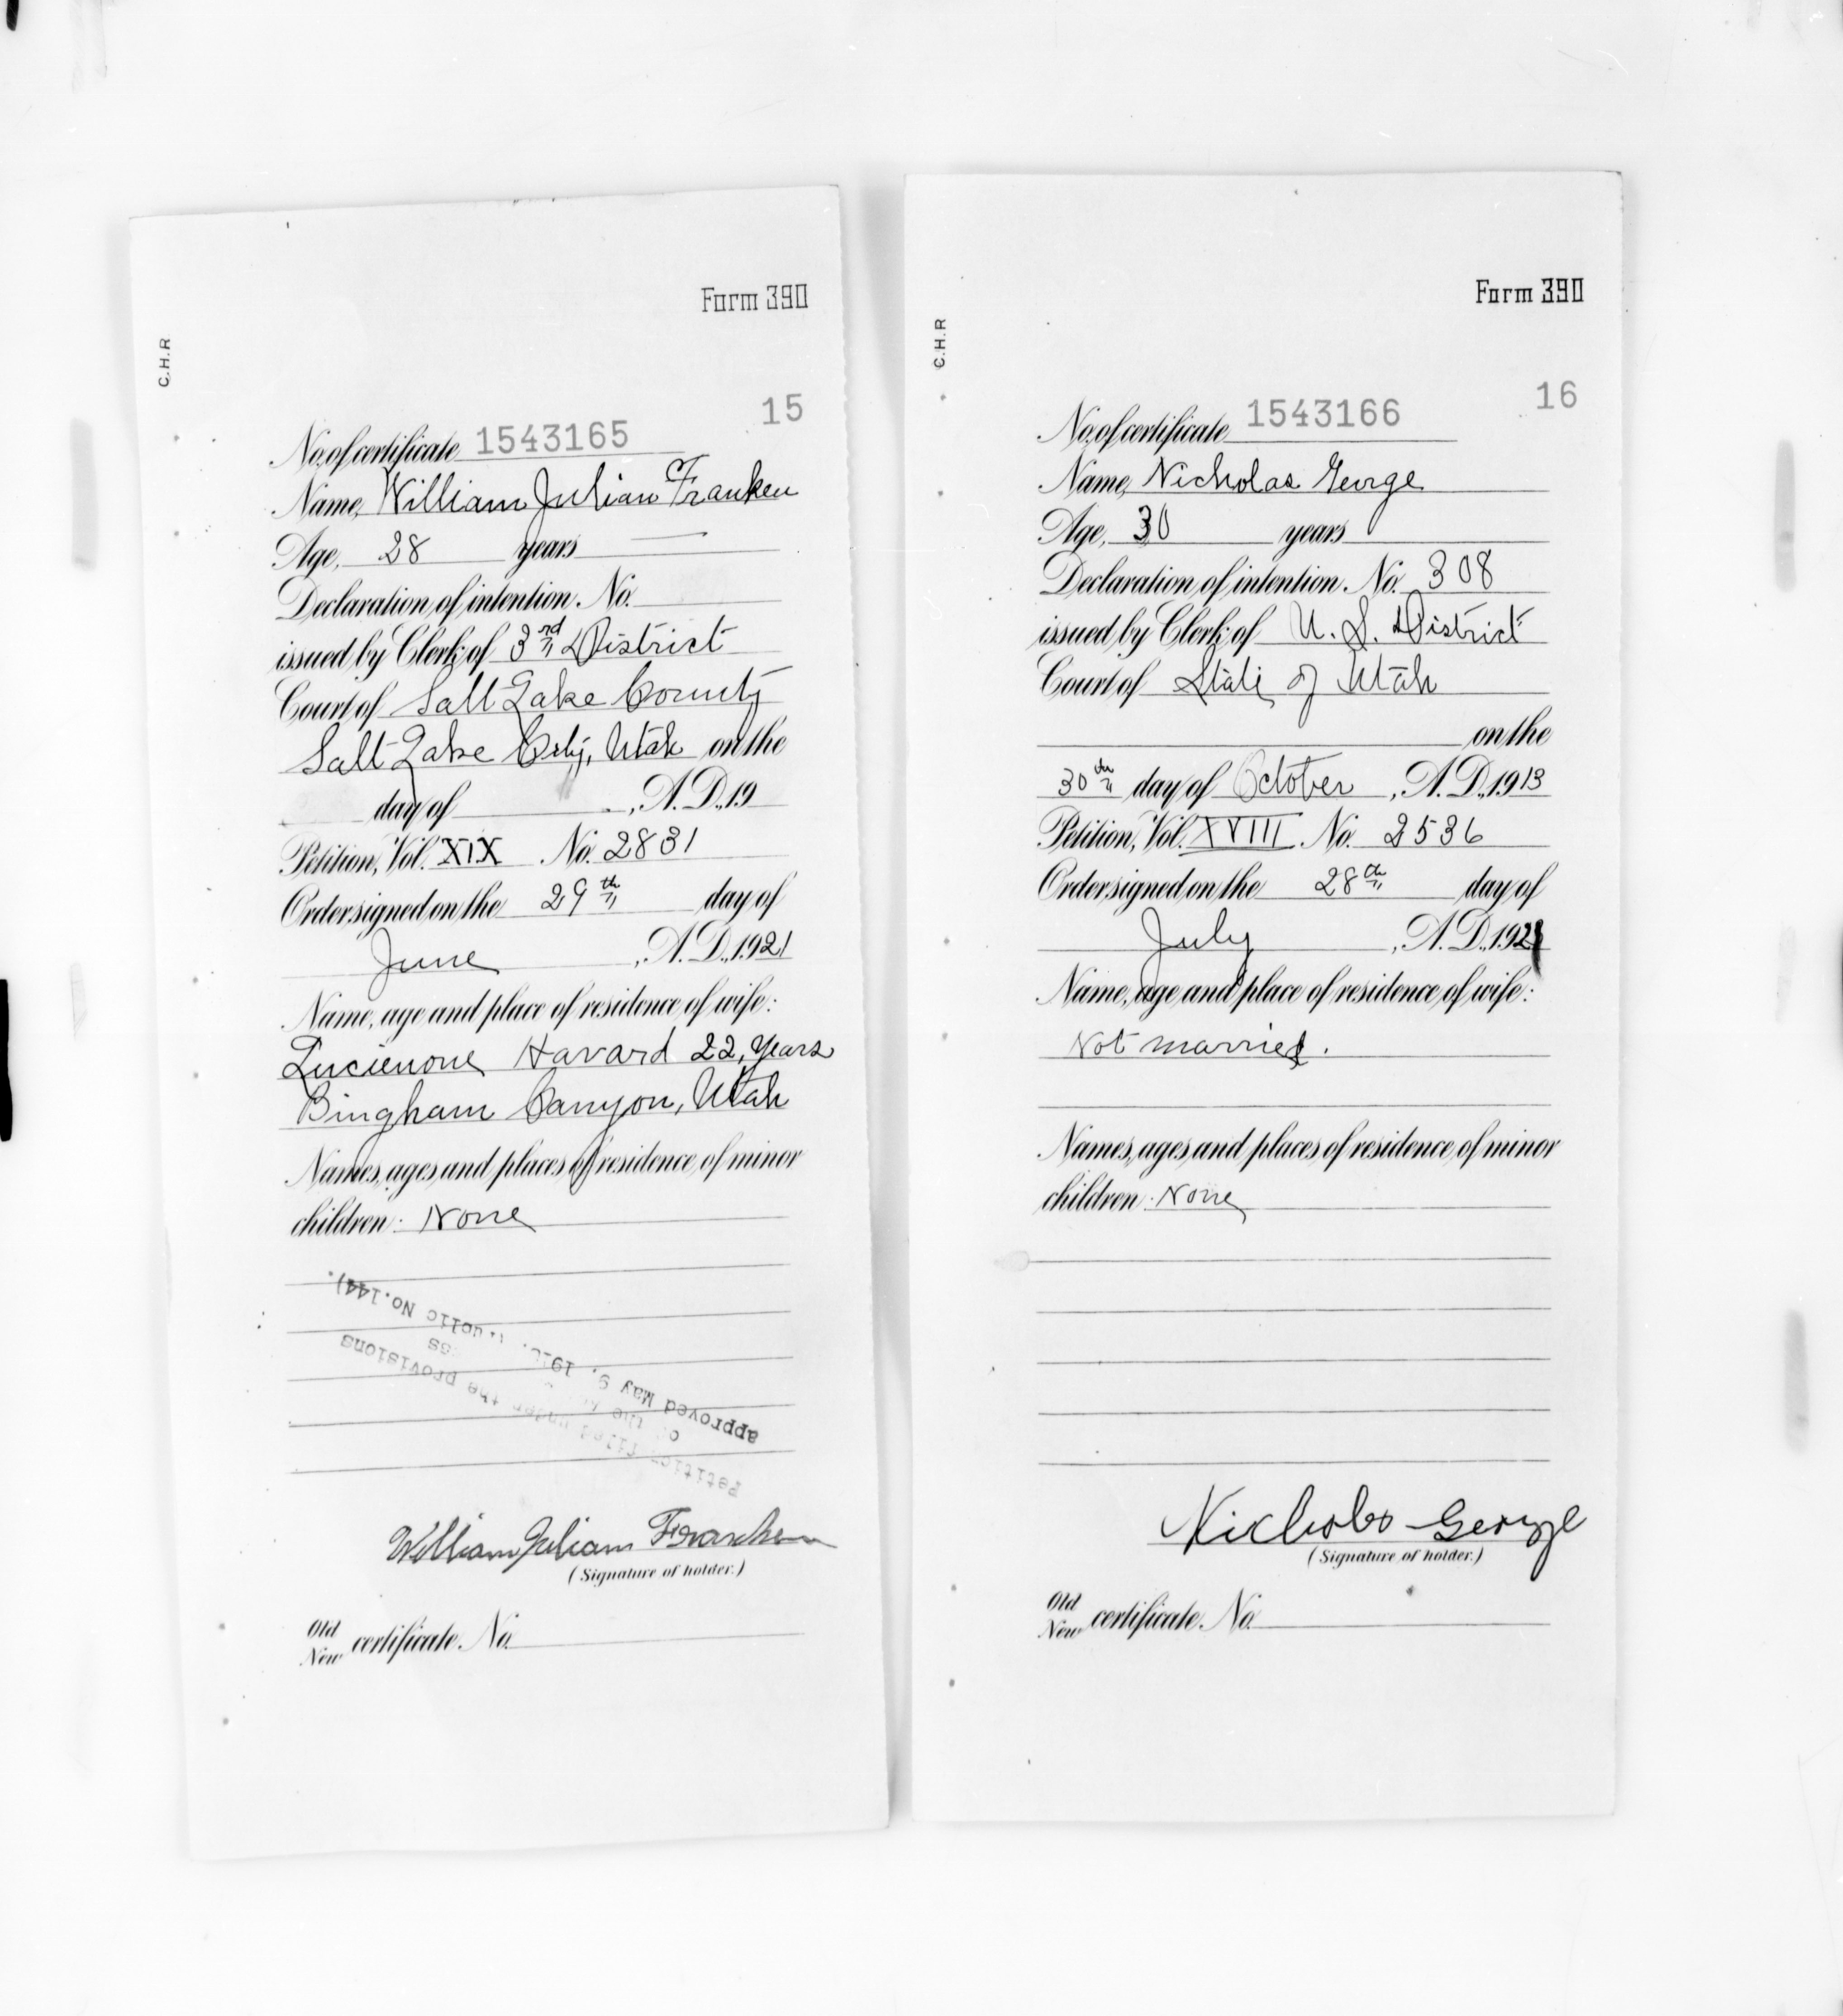 Form 390
C.H.R
15
No. of certificate 1543165
Name, William Julian Franken
Age, 28 years
Declaration of intention No.
issued by Clerk of 3rd District
Court of Salt Lake County
Salt Lake City, Utah on the
day of , A.D., 19
Petition, Vol. XIX No. 2831
Order signed on the 29th day of
June , A.D., 1921
Name, age and place of residence of wife:
Havard 22, years
Bingham Canyon, Utah
Names, ages and places of residence of minor
children: None
Petition filed under the provisions
of the
approved May 9, No. 144).
William Julian Franken
(Signature of holder.)
Old
New certificate No.
Form 390
C.H.R
16
No. of certificate 1543166
Name, Nicholas George
Age, 30 years
Declaration of intention No. 308
issued by Clerk of U. S. District
Court of State of Utah
on the
30th day of October , A.D., 1913
Petition, Vol. XVIII No. 2536
Order signed on the 28th day of
July , A.D., 1921
Name, age and place of residence of wife:
Not married.
Names, ages and places of residence of minor
children: None
Nicholas George
(Signature of holder.)
Old
New certificate No.